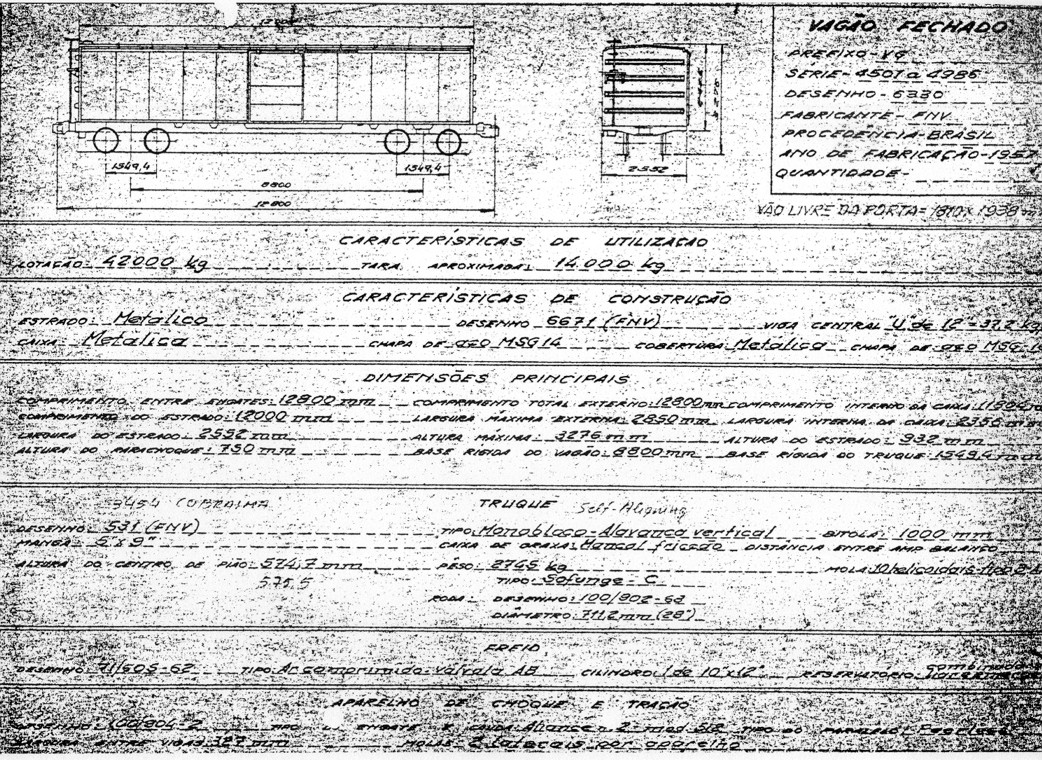 VAGÃO FECHADO
PREFIXO-VG
SERIE-4501 a 4986
DESENHO-6330
FABRICANTE-FNV
PROCEDENCIA-BRASIL
ANO DE FABRICAÇÃO-1957
QUANTIDADE-
1549,4
1549,4
8800
12800
2552
VÃO LIVRE DA PORTA= 1810 x 1938
CARACTERÍSTICAS DE UTILIZAÇÃO
LOTAÇÃO: 42000 kg TARA APROXIMADA: 14.000 kg
CARACTERÍSTICAS DE CONSTRUÇÃO
ESTRADO: Metalico DESENHO 6671 (FNV) VIGA CENTRAL "U" de 12"=37,2 kg
CAIXA: Metalica CHAPA DE aço MSG 14 COBERTURA Metalica CHAPA DE aço MSG
DIMENSÕES PRINCIPAIS
COMPRIMENTO ENTRE ENGATES: 12800 mm COMPRIMENTO TOTAL EXTERNO: 12800 mm COMPRIMENTO INTERNO DA CAIXA
COMPRIMENTO DO ESTRADO: 12000 mm LARGURA MÁXIMA EXTERNA: 2850 mm LARGURA INTERNA DA CAIXA: 2350 mm
LARGURA DO ESTRADO: 2552 mm ALTURA MÁXIMA: 3276 mm ALTURA DO ESTRADO: 932 mm
ALTURA DO PARACHOQUE: 750 mm BASE RIGIDA DO VAGÃO: 8800 mm BASE RÍGIDA DO TRUQUE: 1549,4 mm
3454 COBRASMA TRUQUE Self-Aligning
DESENHO: 531 (FNV) TIPO: Monobloco-Alavanca vertical BITOLA: 1000 mm
MANGA: 5"x 9" CAIXA DE GRAXA: Mancal fricção DISTÂNCIA ENTRE AMP BALANÇO
ALTURA DO CENTRO DE PIÃO: 574,7 mm PÊSO: 2745 kg MOLA: 10 helicoidais
575,5 TIPO: Sofunge-C
RODA: DESENHO: 100/802-62
DIÂMETRO: 711,2 mm (28")
FREIO
DESENHO: 71/505-62 TIPO: Ar comprimido-válvula AB CILINDRO: 1 de 10"x12" RESERVATÓRIO: combinado
APARELHO DE CHOQUE E TRAÇÃO
DESENHO: 100/804-2 TIPO ENGATE Aliance 2
327 mm MOLAS: 2 laterais por aparelho